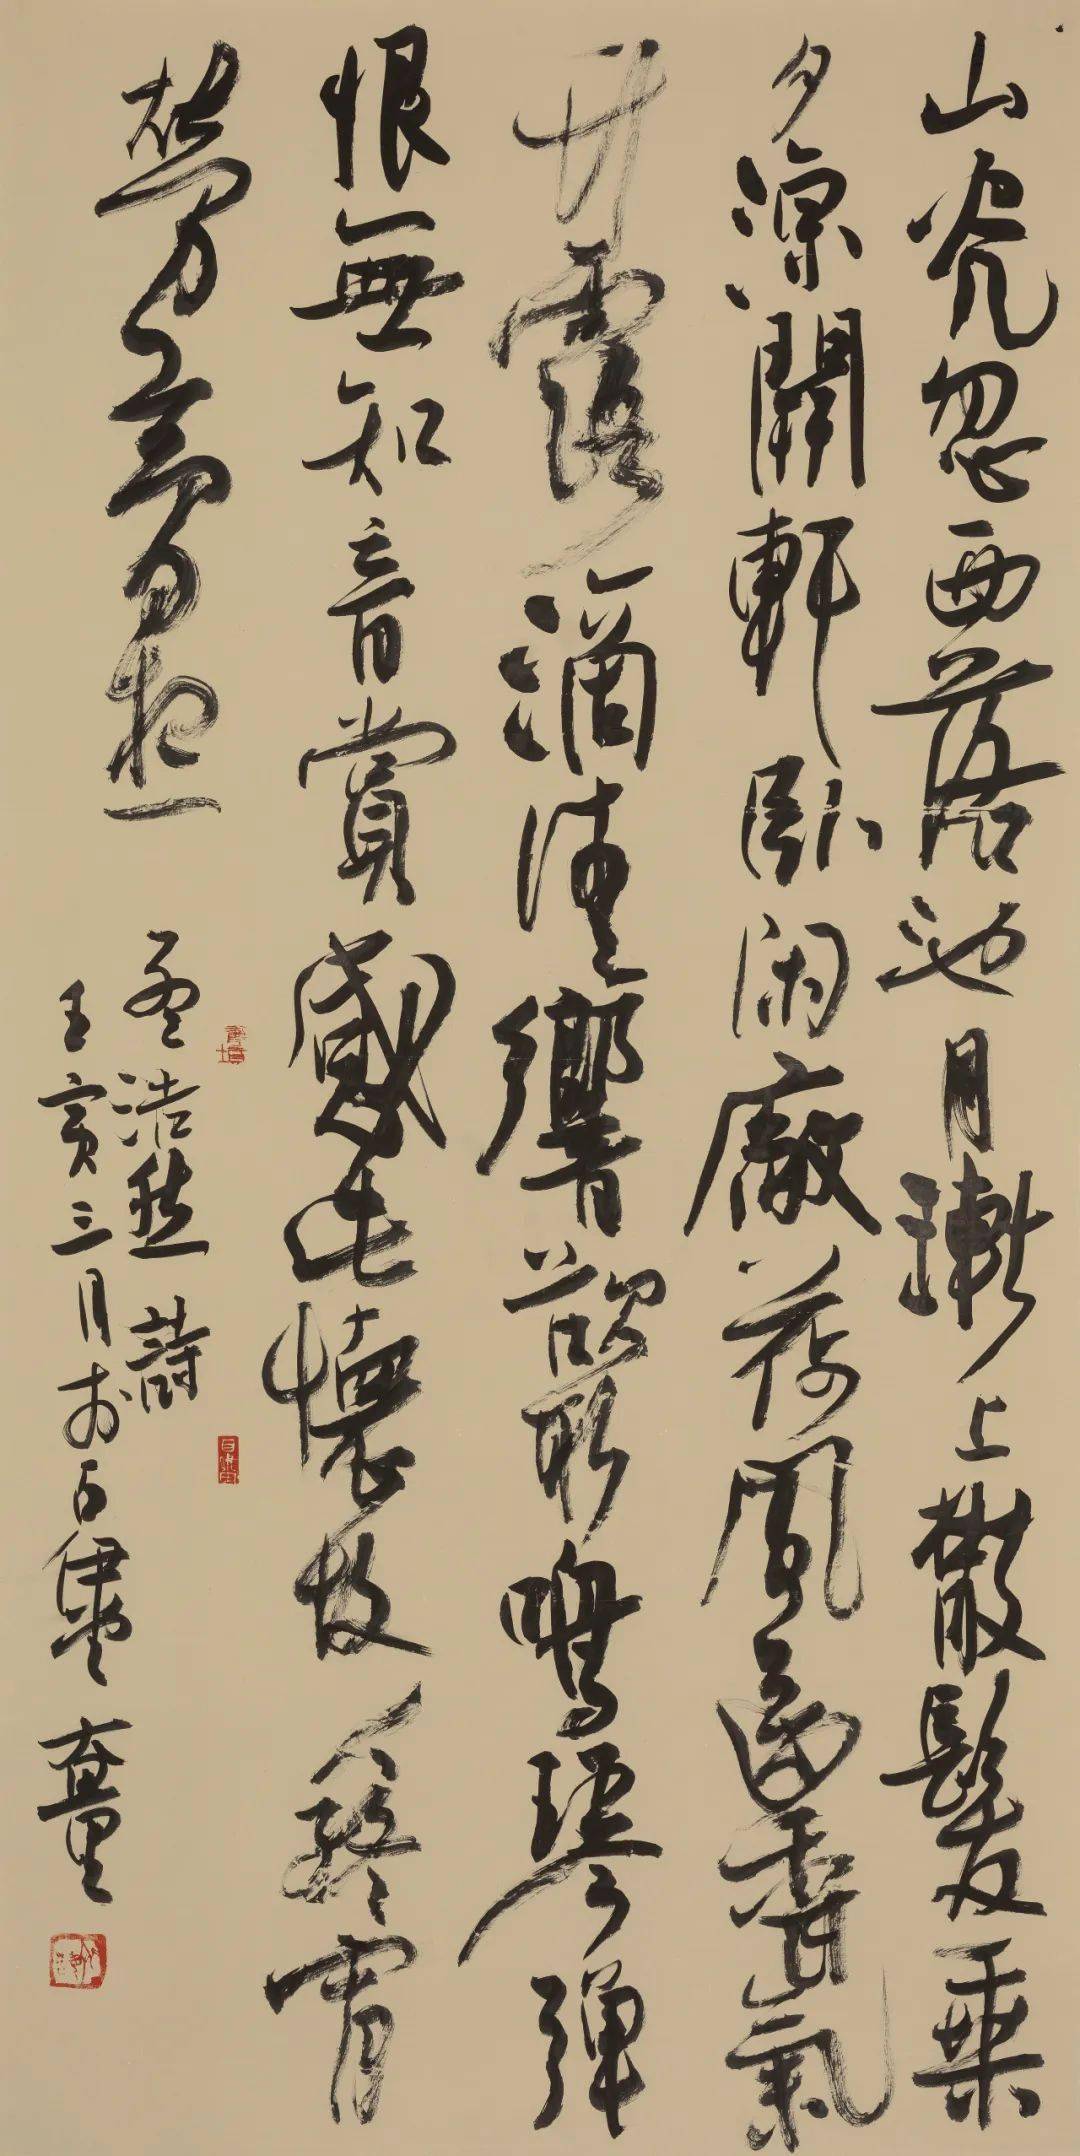 山光忽西落池月漸上散髮乘
夕涼開軒臥閑廠荷風送香氣
竹露滴清響欲取鳴琴彈
恨無知音賞感此懷故人終宵
勞夢想
孟浩然詩
壬寅三月於